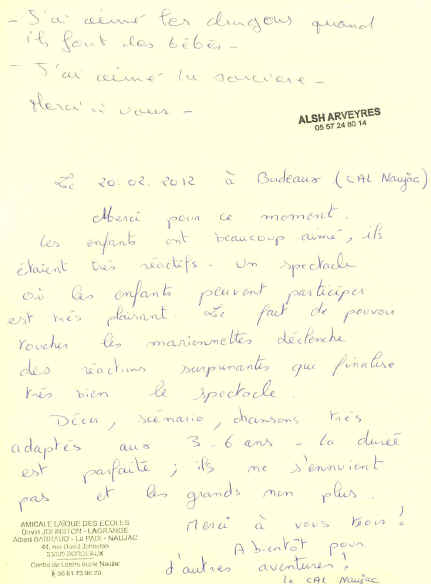 - J'ai aimé les dragons quand
ils font des bébés -
- J'ai aimé la sorcière -
Merci à vous -
ALSH ARVEYRES
05 57 24 80 14
Le 20.02.2012 à Bordeaux (CAL Naujac)
Merci pour ce moment.
Les enfants ont beaucoup aimé, ils
étaient très réactifs. Un spectacle
où les enfants peuvent participer
est très plaisant. Le fait de pouvoir
toucher les marionnettes déclenche
des réactions surprenantes que finalise
très bien le spectacle.
Décor, scénario, chansons très
adaptés aux 3-6 ans - la durée
est parfaite ; ils ne s'ennuient
pas et les grands non plus.
Merci à vous tous !
A bientôt pour
d'autres aventures !
le CAL Naujac
AMICALE LAÏQUE DES ECOLES
David JOHNSTON - LAGRANGE
Albert BARRAUD - La PAIX - NAUJAC
44, rue David Johnston
33000 BORDEAUX
Centre de Loisirs Naujac